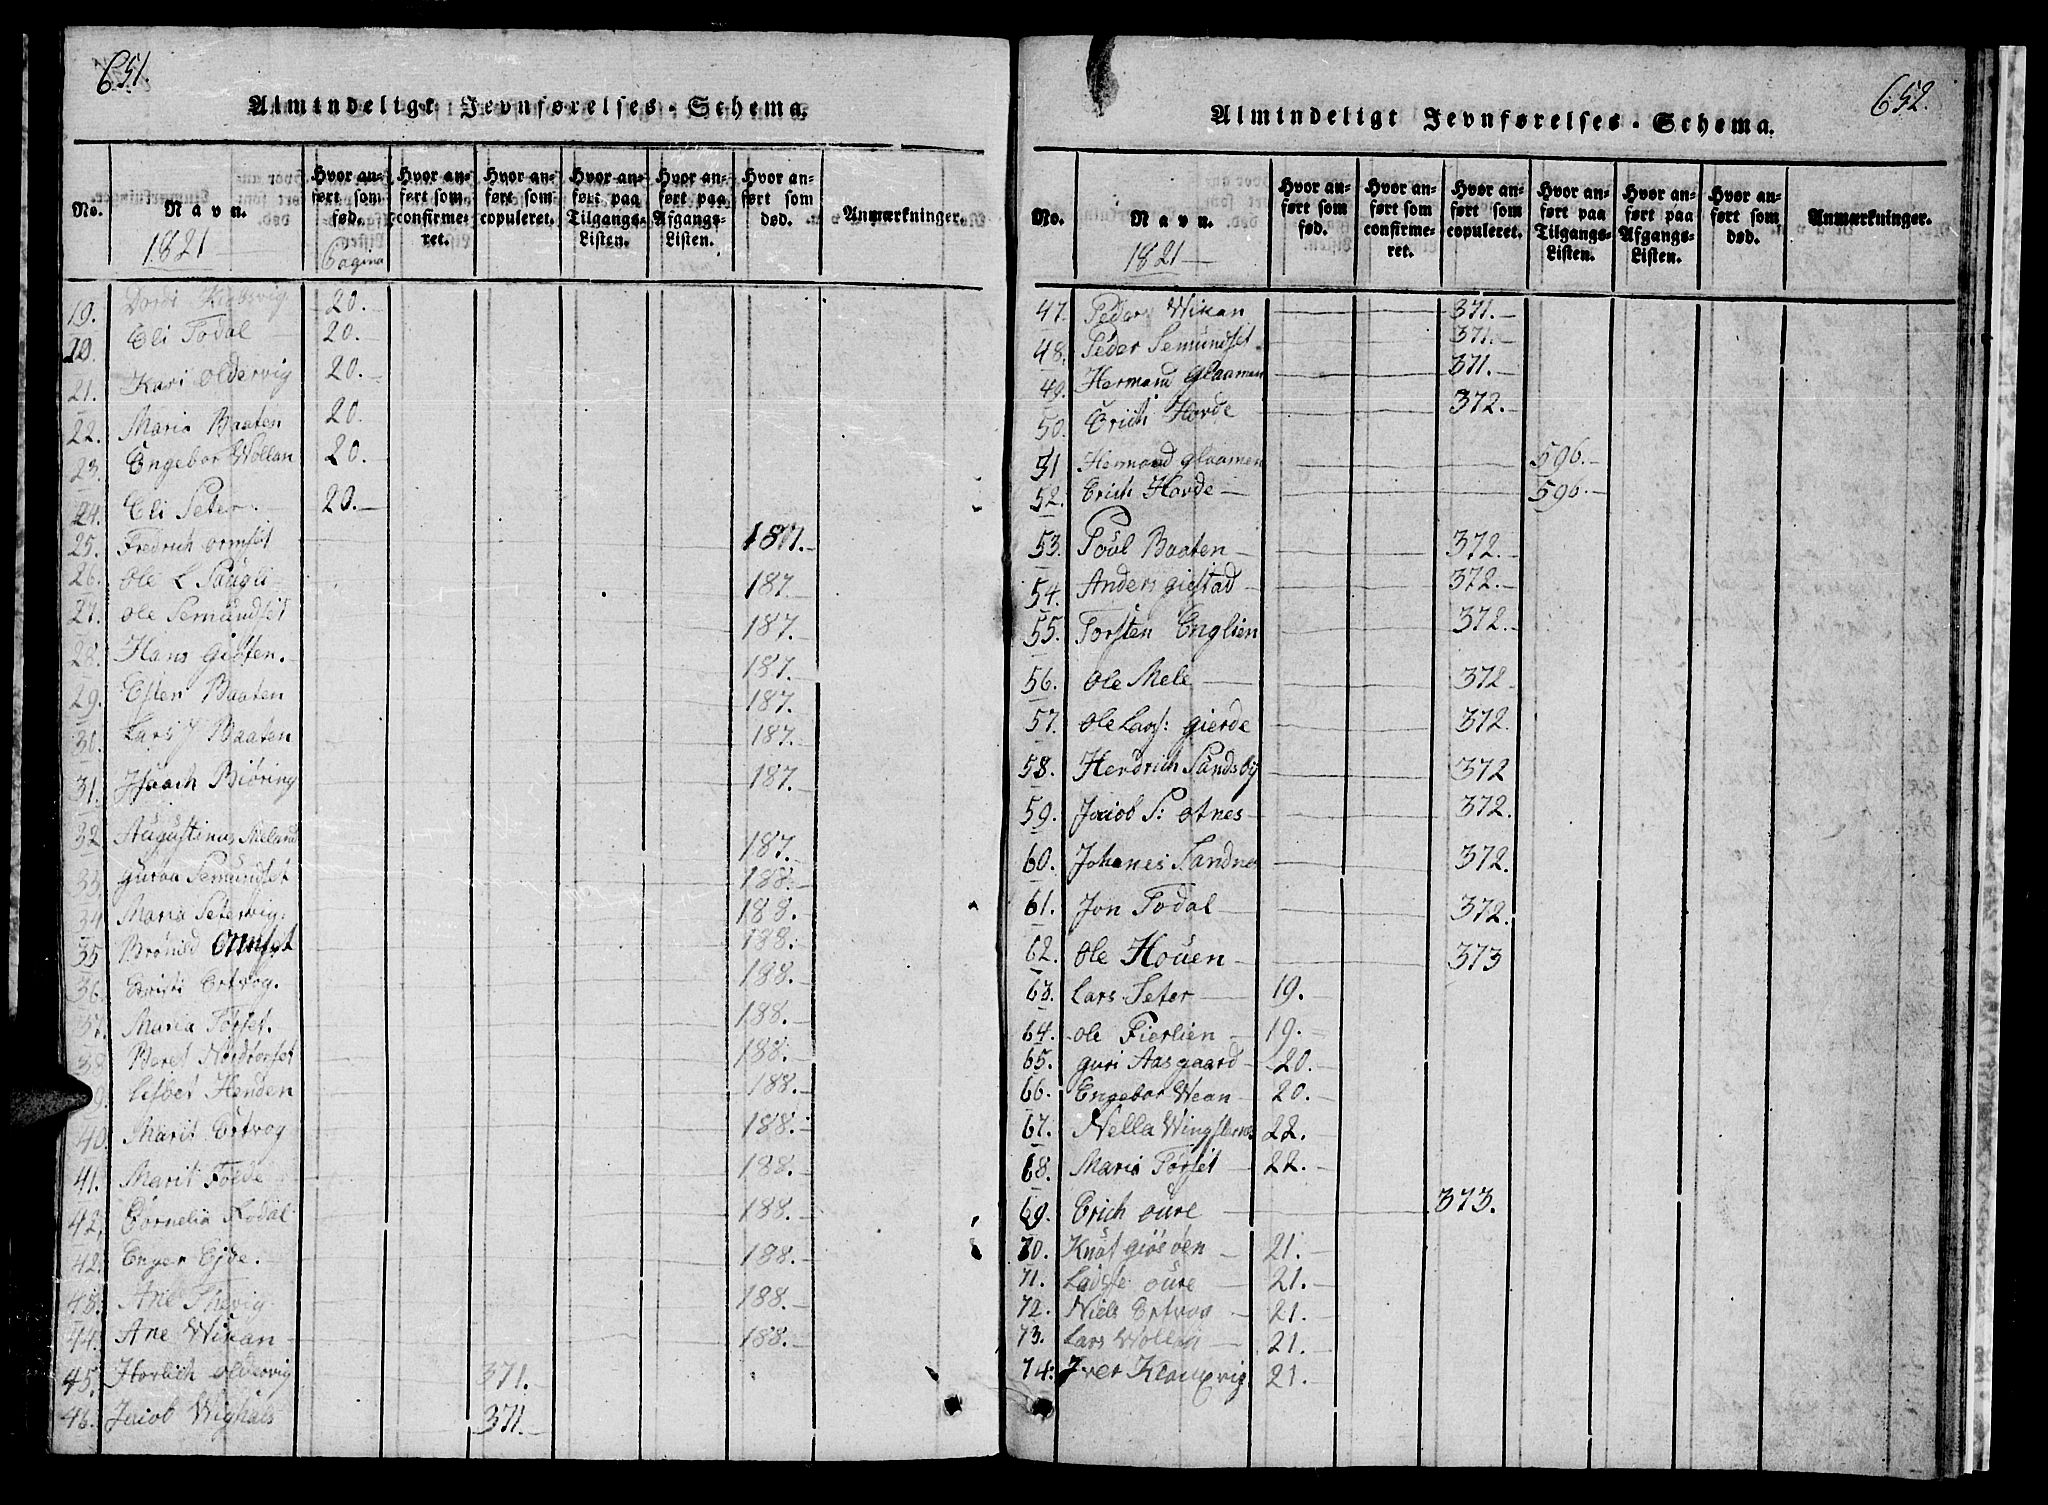 651.
Almindeligt Jevnførelses-Schema.
No.
Navn.
1821
Hvor anført som fød.
Pagina
Hvor anført som confirmeret.
Hvor anført som copuleret.
Hvor anført paa Tilgangs-Listen.
Hvor anført paa Afgangs-Listen.
Hvor anført som død.
Anmærkninger.
19. Dordi 20.
20. Eli Todal 20.
21. Kari Oldervig 20.
22. Maria Baaten 20.
23. Engebor Wollan 20.
24. Eli Seter. 20.
25. Fredrich Ormset 187.
26. Ole L Saugli 187.
27. Ole Semundset 187.
28. Hans Gisten. 187.
29. Esten Baaten 187.
30. Lars J Baaten 187.
31. Isaach Biöring 187.
32 Augustinus Meland 187.
33. Guroa Semundset 188.
34 Maria Setervig. 188.
35 Brönild Ormset 188.
36. Ertvog. 188.
37. Maria Törset. 188.
38 Beret Nordtönset 188.
39. Lisbet Henden 188.
40. Marit Ertvog 188.
41. Marit Folde 188.
42. Cornelia Rodal 188.
42. Enger Eide. 188.
43. Ane 188.
44. Ane Wikan 188.
45. Horlich Oldervig 371.
46. Jaiob Wighals 371.
652.
Almindeligt Jevnførelses-Schema.
No.
Navn.
1821
Hvor anført som fød.
Hvor anført som confirmeret.
Hvor anført som copuleret.
Hvor anført paa Tilgangs-Listen.
Hvor anført paa Afgangs-Listen.
Hvor anført som død.
Anmærkninger.
47. Peder Wikan 371.
48. Peder Semundset 371.
49. Hermand Glaamen 371.
50. Erich Hovde 372.
51 Hermand Glaamen 596.
52. Erich Hovde 596.
53. Poul Baaten 372.
54. Anders Giestad 372.
55. Torsten Englien 372.
56. Ole Mele 372
57. Ole Lars: Gierde 372.
58. Hendrich Sandsby 372
59. Jaiob S: Otnes 372.
60. Johanes Sandnes 372.
61. Jon Todal 372.
62. Ole Houen 373
63. Lars Seter 19.
64. Ole Fierlien 19.
65. Guri Aasgaard 20.
66. Engebor Wean 20.
67. Nella Wingsternes 22.
68. Maria Törset 22.
69. Erich Oure 373.
70. Knut Giösöen 21.
71. Ladsse Oure 21.
72. Niels Ertvog 21.
73. Lars Wollan 21.
74. Iver Klamvig 21.